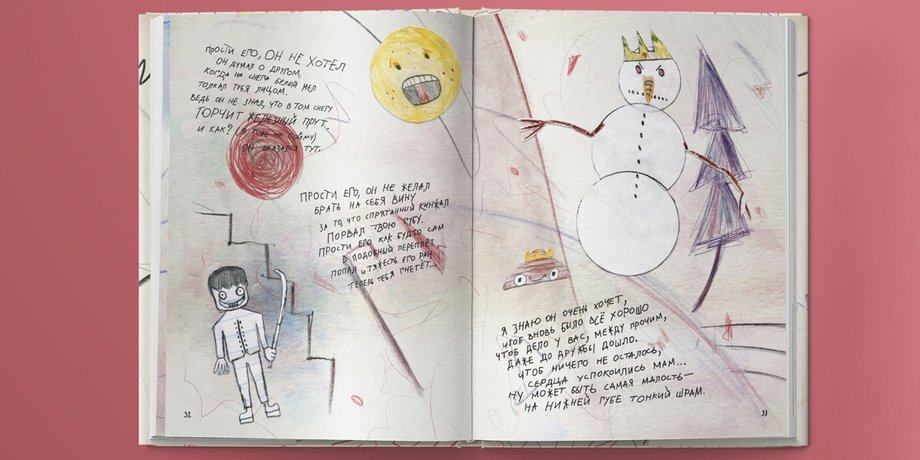 ПРОСТИ ЕГО, ОН НЕ ХОТЕЛ
ОН ДУМАЛ О ДРУГОМ,
КОГДА НА СНЕГА БЕЛОЙ МЕЛ
ТОЛКАЛ ТЕБЯ ЛИЦОМ.
ВЕДЬ ОН НЕ ЗНАЛ, ЧТО В ТОМ СНЕГУ
ТОРЧИТ ЖЕЛЕЗНЫЙ ПРУТ.
И КАК? (Я ТОЖЕ НЕ ПОЙМУ)
ОН ОКАЗАЛСЯ ТУТ.
ПРОСТИ ЕГО, ОН НЕ ЖЕЛАЛ
БРАТЬ НА СЕБЯ ВИНУ
ЗА ТО, ЧТО СПРЯТАННЫЙ КИНЖАЛ
ПОРВАЛ ТВОЮ ГУБУ.
ПРОСТИ ЕГО, КАК БУДТО САМ
В ПОДОБНЫЙ ПЕРЕПЛЁТ
ПОПАЛ И ТЯЖЕСТЬ ЕГО РАН
ТЕПЕРЬ ТЕБЯ ГНЕТЁТ...
32
Я ЗНАЮ ОН ОЧЕНЬ ХОЧЕТ,
ЧТОБ ВНОВЬ БЫЛО ВСЁ ХОРОШО
ЧТОБ ДЕЛО У ВАС, МЕЖДУ ПРОЧИМ,
ДАЖЕ ДО ДРУЖБЫ ДОШЛО.
ЧТОБ НИЧЕГО НЕ ОСТАЛОСЬ,
СЕРДЦА УСПОКОИЛИСЬ МАМ...
НУ МОЖЕТ БЫТЬ САМАЯ МАЛОСТЬ—
НА НИЖНЕЙ ГУБЕ ТОНКИЙ ШРАМ.
33